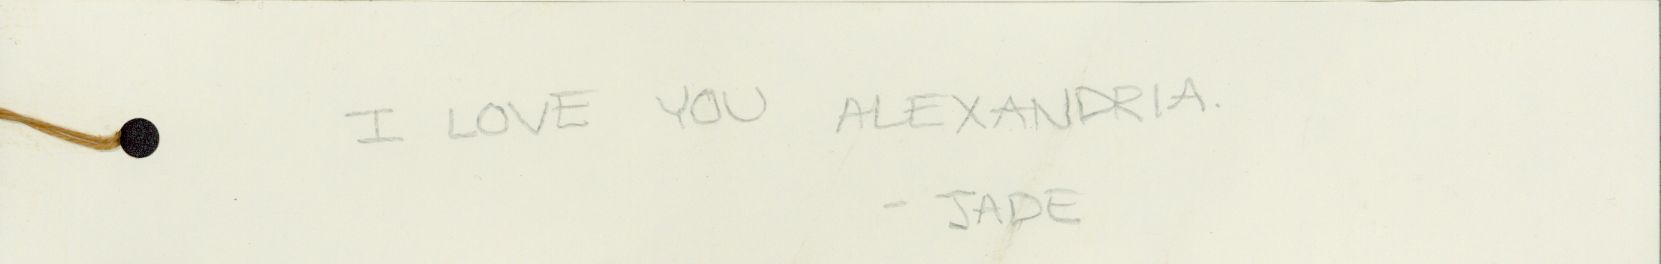 I LOVE YOU ALEXANDRIA.
- JADE